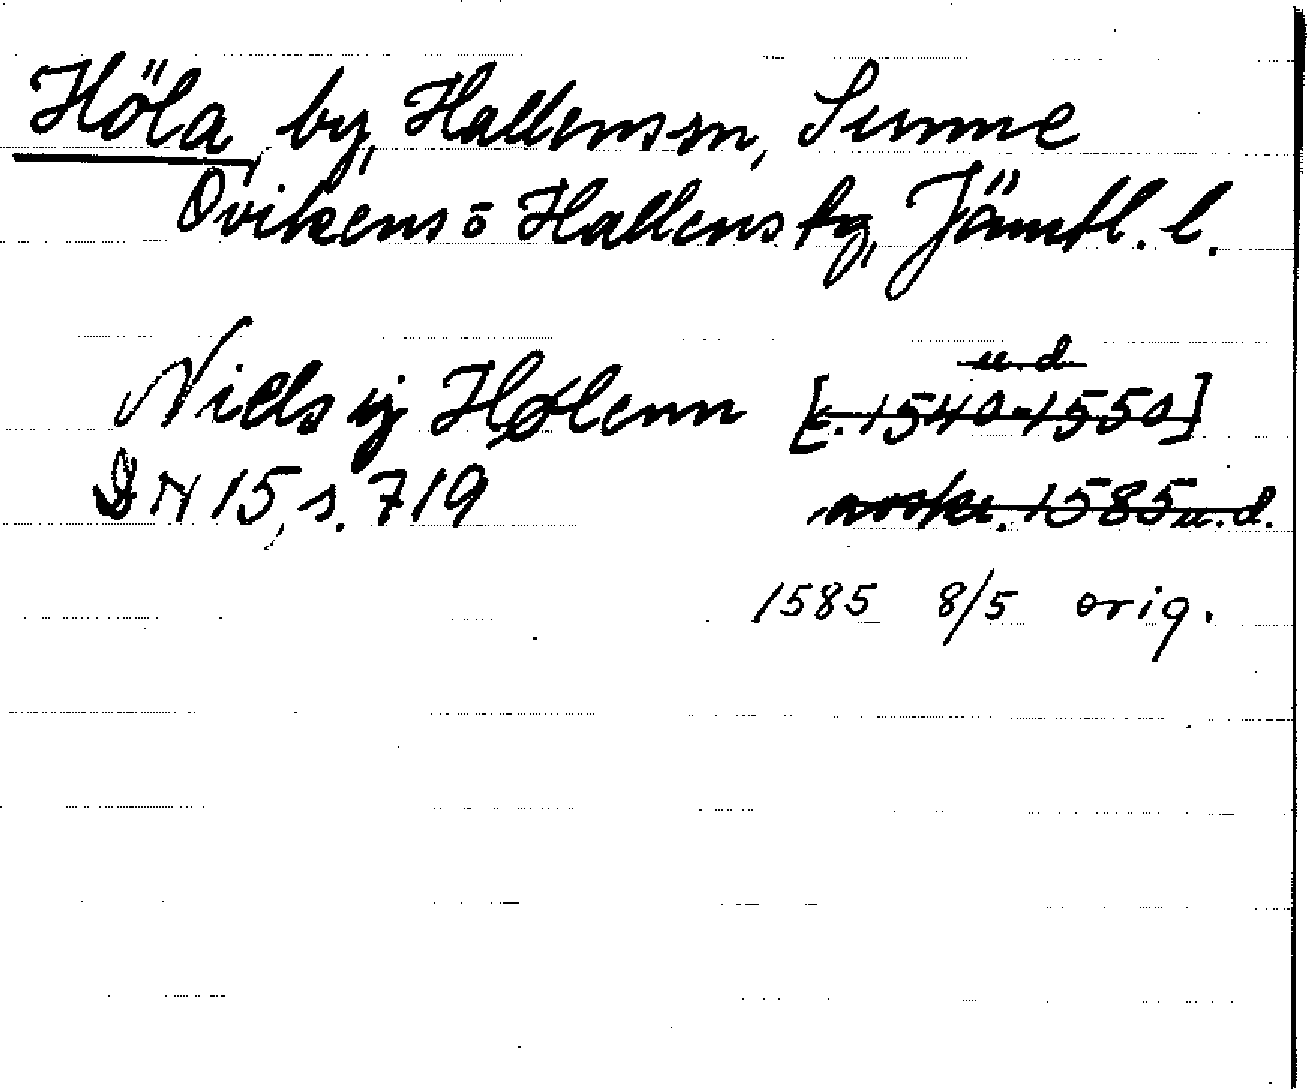 Höla, by, Hallens sn, Sunne
Ovikens o Hallens tg, Jämtl. l.
u. d.
Niels ij Hølenn [c. 1540-1550]
DN 15, s. 719 avskr. 1585 u.d.
1585 8/5 orig.